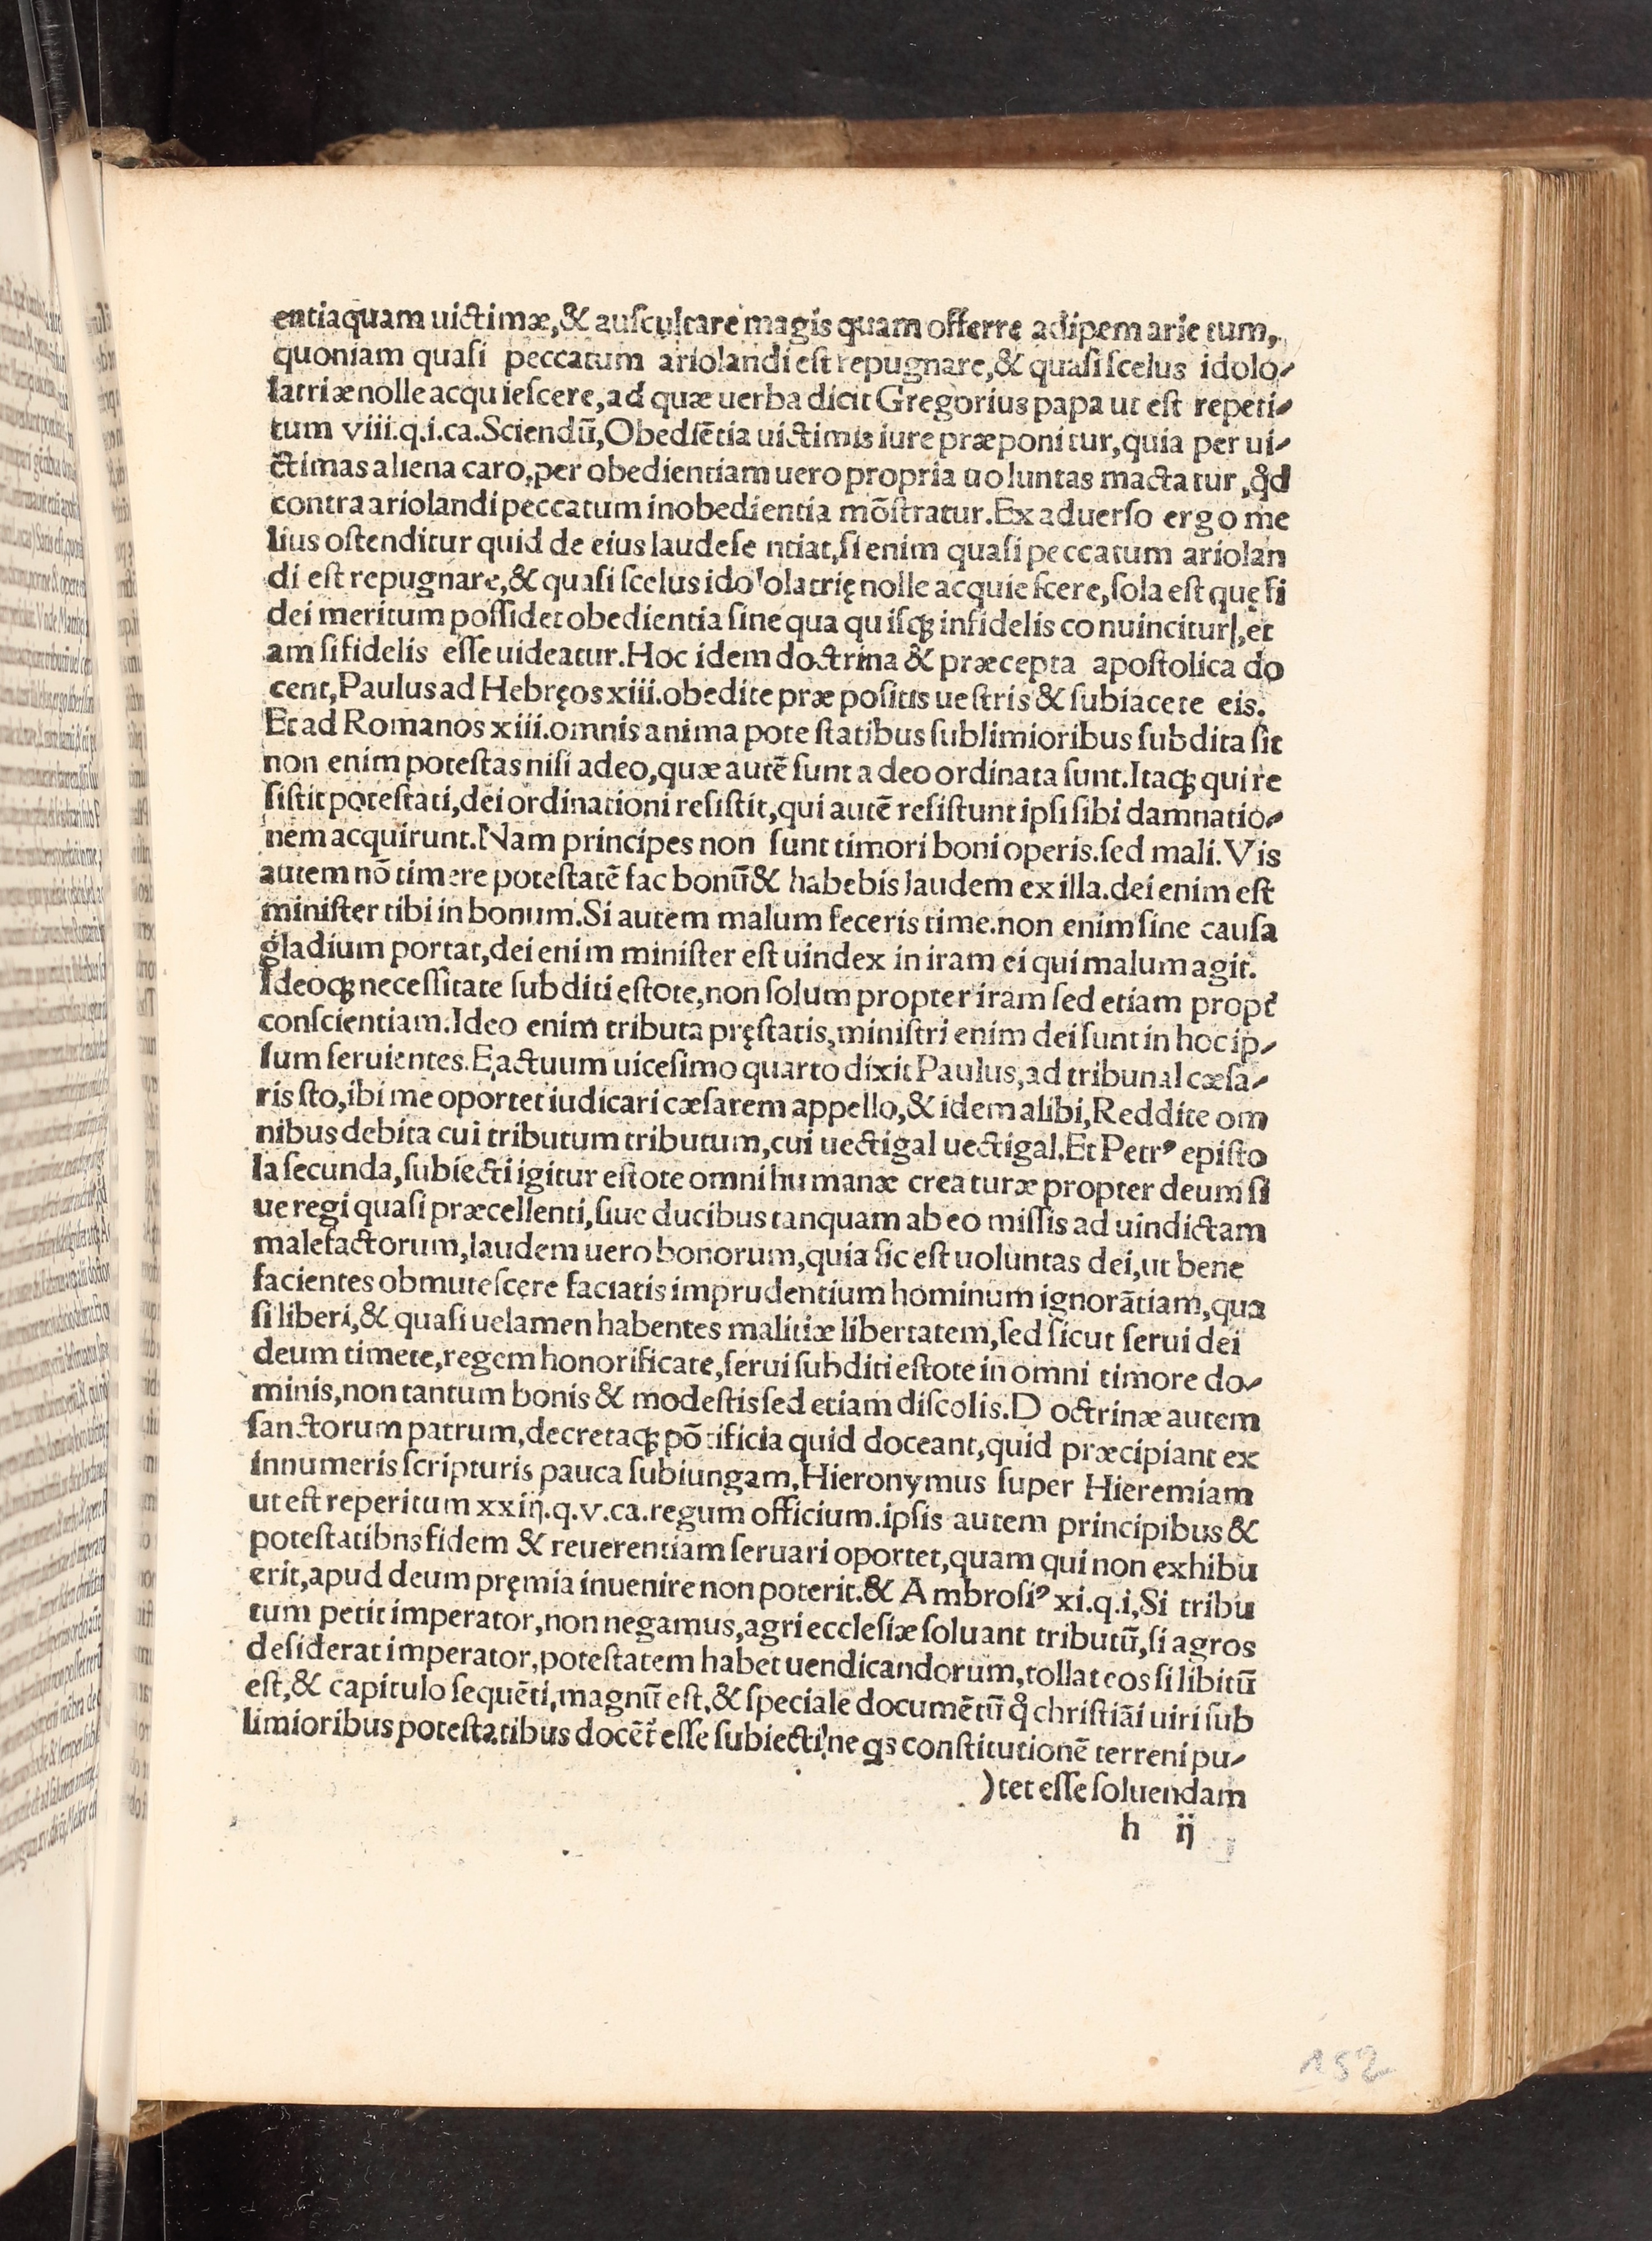 entia quam uictimæ, & auſcultare magis quam offerre adipem arie tum,
quoniam quaſi peccatum ariolandi eſt repugnare, & quaſi ſcelus idolo-
latriæ nolle acqu ieſcere, ad quæ uerba dicit Gregorius papa ut eſt reperi-
tum viii.q.i.ca.Sciendū, Obediētia uictimis iure præponitur, quia per ui-
ctimas aliena caro, per obedientiam uero propria uoluntas mactatur, qd̕
contra ariolandi peccatum inobedientia mōſtratur. Ex aduerſo ergo me
lius oſtenditur quid de eius laude ſe ntiat, ſi enim quaſi peccatum ariolan
di eſt repugnare, & quaſi ſcelus idololatrię nolle acquie ſcere, ſola eſt quę fi
dei meritum poſſidet obedientia ſine qua quiſqꝫ infidelis conuincitur, et
am ſi fidelis eſſe uideatur. Hoc idem doctrina & præcepta apoſtolica do
cent, Paulus ad Hebręos xiii. obedite præ poſitis ueſtris & ſubiacete eis.
Et ad Romanos xiii. omnis anima poteſtatibus ſublimioribus ſubdita ſit
non enim poteſtas niſi adeo, quæ autē ſunt a deo ordinata ſunt. Itaqꝫ qui re
ſiſtit poteſtati, dei ordinationi reſiſtit, qui autē reſiſtunt ipſi ſibi damnatio-
nem acquirunt. Nam principes non ſunt timori boni operis. ſed mali. Vis
autem nō timere poteſtatē fac bonū & habebis laudem ex illa. dei enim eſt
miniſter tibi in bonum. Si autem malum feceris time. non enim ſine cauſa
gladium portat, dei enim miniſter eſt uindex in iram ei qui malum agit.
Ideoqꝫ neceſſitate ſubditi eſtote, non ſolum propter iram ſed etiam propt̕
conſcientiam. Ideo enim tributa pręſtatis, miniſtri enim dei ſunt in hoc ip-
ſum ſeruientes. E, actuum uiceſimo quarto dixit Paulus, ad tribunal cæſa-
ris ſto, ibi me oportet iudicari cæſarem appello, & idem alibi, Reddite om
nibus debita cui tributum tributum, cui uectigal uectigal. Et Petrꝰ epiſto
la ſecunda, ſubiecti igitur eſtote omni humanæ creaturæ propter deum ſi
ue regi quaſi præcellenti, ſiue ducibus tanquam ab eo miſſis ad uindictam
malefactorum, laudem uero bonorum, quia ſic eſt uoluntas dei, ut bene
facientes obmuteſcere faciatis imprudentium hominum ignorātiam, qua
ſi liberi, & quaſi uelamen habentes malitiæ libertatem, ſed ſicut ſerui dei
deum timete, regem honorificate, ſerui ſubditi eſtote in omni timore do-
minis, non tantum bonis & modeſtis ſed etiam diſcolis. D octrinæ autem
ſanctorum patrum, decretaqꝫ pōtificia quid doceant, quid præcipiant ex
innumeris ſcripturis pauca ſubiungam. Hieronymus ſuper Hieremiam
ut eſt reperitum xxiij.q.v.ca.regum officium. ipſis autem principibus &
poteſtatibns fidem & reuerentiam ſeruari oportet, quam qui non exhibu
erit, apud deum pręmia inuenire non poterit. & A mbroſiꝰ xi.q.i, Si tribu
tum petit imperator, non negamus, agri eccleſiæ ſoluant tributū, ſi agros
deſiderat imperator, poteſtatem habet uendicandorum, tollat eos ſi libitū
eſt, & capitulo ſequēti, magnū eſt, & ſpeciale documētū ꝙ chriſtiāi uiri ſub
limioribus poteſtatibus docēt̕ eſſe ſubiecti, ne qs conſtitutionē terreni pu-
)tet eſſe ſoluendam
h ij
152